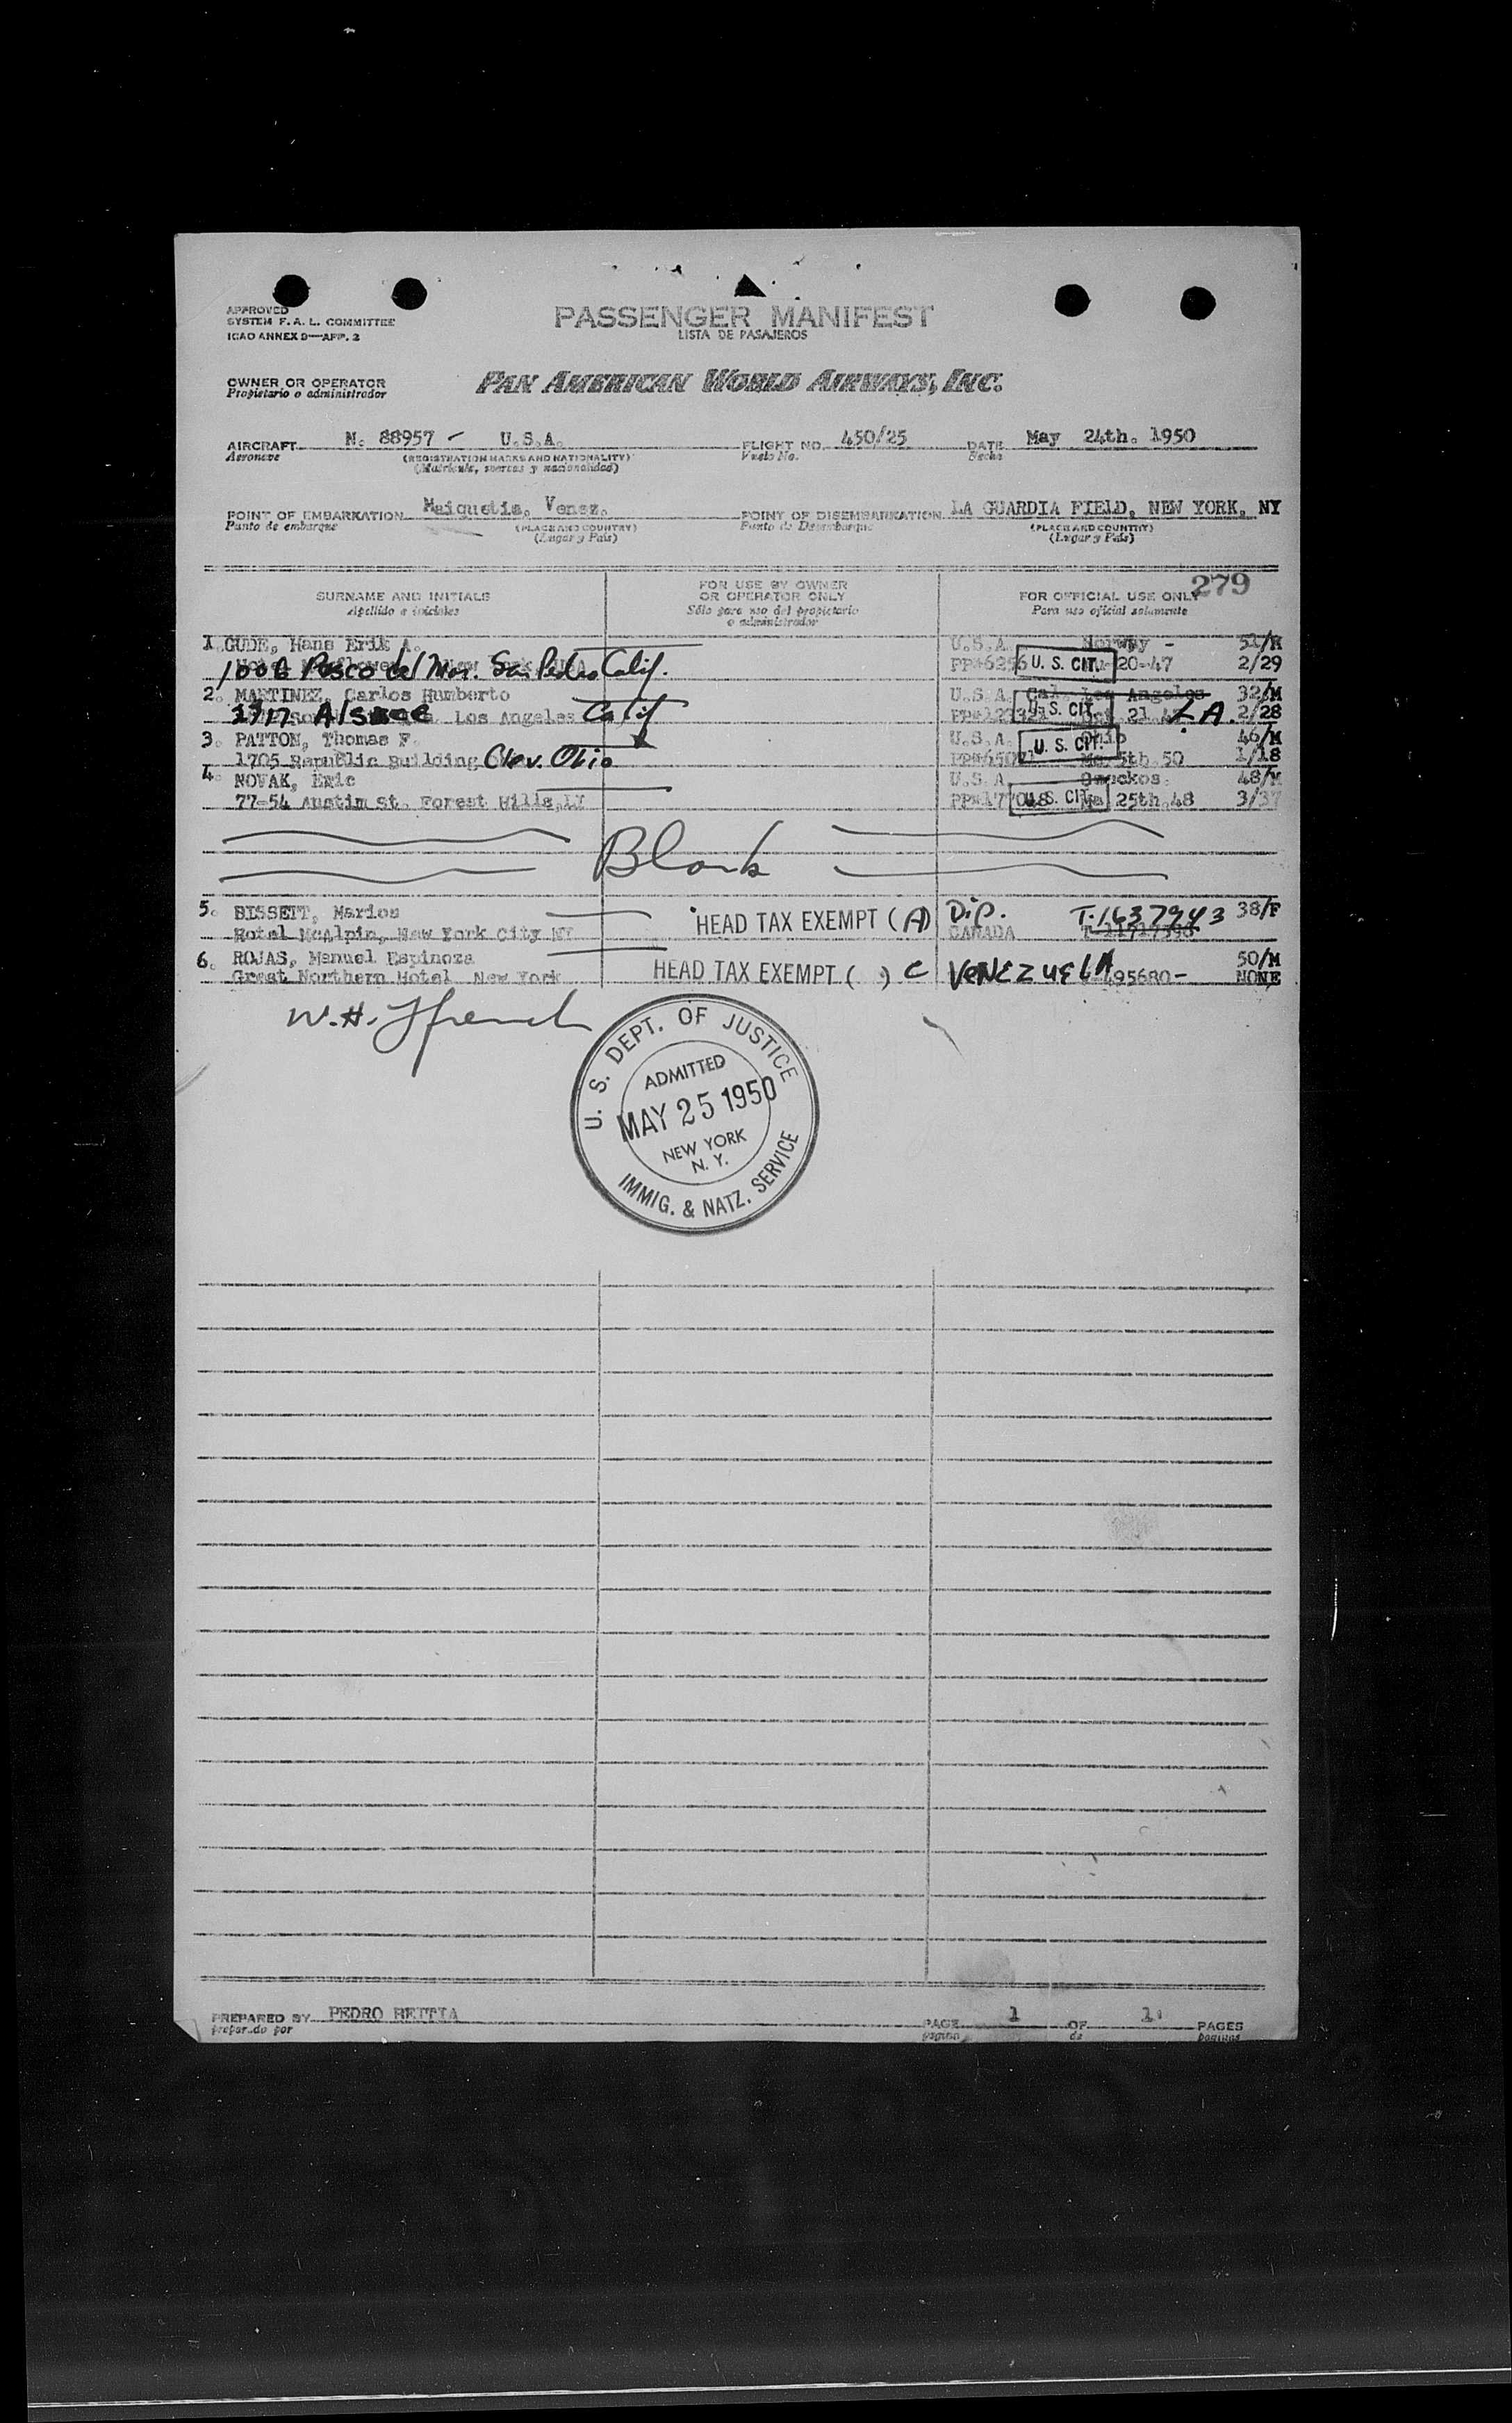 APPROVED
SYSTEM F. A. L. COMMITTEE
ICAO ANNEX 9—APP. 2
PASSENGER MANIFEST
LISTA DE PASAJEROS
OWNER OR OPERATOR
Propietario o administrador
PAN AMERICAN WORLD AIRWAYS, INC.
AIRCRAFT N. 88957 - U.S.A. FLIGHT NO. 450/25 DATE May 24th. 1950
Aeronave (REGISTRATION MARKS AND NATIONALITY) Vuelo No. Fecha
(Matrícula, marcas y nacionalidad)
POINT OF EMBARKATION Maiquetia, Venez. POINT OF DISEMBARKATION LA GUARDIA FIELD, NEW YORK, NY
Punto de embarque (PLACE AND COUNTRY) Punto de Desembarque (PLACE AND COUNTRY)
(Lugar y País) (Lugar y País)
279
SURNAME AND INITIALS FOR USE BY OWNER OR OPERATOR ONLY FOR OFFICIAL USE ONLY
Apellido e iniciales Sólo para uso del propietario o administrador Para uso oficial solamente
1. GUDE, Hans Erik A. U.S.A. Norway - 51/M
1006 Paseo del Mar. San Pedro Calif. U. S. CIT. 20-47 2/29
2. MARTINEZ, Carlos Humberto U.S.A. Cal. Los Angeles 32/M
Los Angeles Calif U. S. CIT. 21 L A. 2/28
3. PATTON, Thomas F. U.S.A. Ohio 46/M
1705 Republic Building Clev. Ohio U. S. CIT. 5th 50 1/18
4. NOVAK, Eric U.S.A. 48/M
77-54 Austin St. Forest Hills, LI U. S. CIT. 25th 48 3/37
Blank
5. BISSETT, Marion HEAD TAX EXEMPT (A) Dip. T-1637943 38/F
Hotel McAlpin, New York City NY CANADA
6. ROJAS, Manuel Espinoza HEAD TAX EXEMPT ( ) C VENEZUELA 495680- 50/M
Great Northern Hotel New York NONE
W. H. Ffrench
U. S. DEPT. OF JUSTICE
ADMITTED
MAY 25 1950
NEW YORK
N. Y.
IMMIG. & NATZ. SERVICE
PREPARED BY PEDRO BEITIA PAGE 1 OF 1 PAGES
preparado por página de páginas